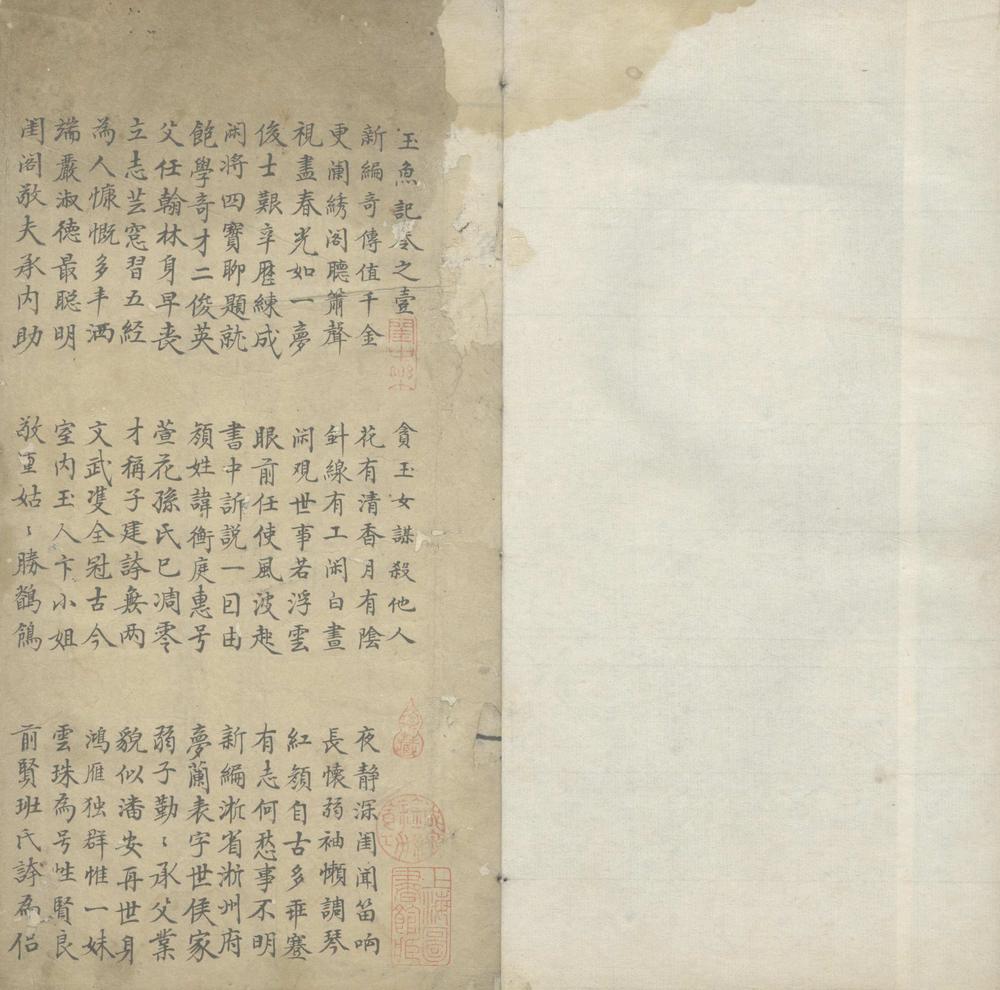 玉魚記卷之壹　貪玉女謀殺他人
新編奇傳值千金　花有清香月有陰　夜静深闺闻笛响
更阑綉阁聽簫聲　針線有工闲白晝　長懷弱袖懶調琴
視盡春光如一夢　闲观世事若浮雲　紅顏自古多乖蹇
俊士艱辛歷練成　眼前任使風波起　有志何愁事不明
闲将四寳聊題就　書中訴說一囙由　新編淅省淅州府
飽學奇才二俊英　顏姓諱衡庭惠号　夢蘭表字世侯家
父任翰林身早丧　萱花孫氏已凋零　弱子勤〻承父業
立志芸窓習五経　才稱子建誇無两　貌似潘安再世身
為人慷慨多丰洒　文武雙全冠古今　鴻雁独群惟一妹
端嚴淑德最聪明　室内玉人卞小姐　雲珠為号性賢良
闺阁敬夫承内助　敬重姑〻勝鶺鴒　前賢班氏誇為侣
上海圖書館藏